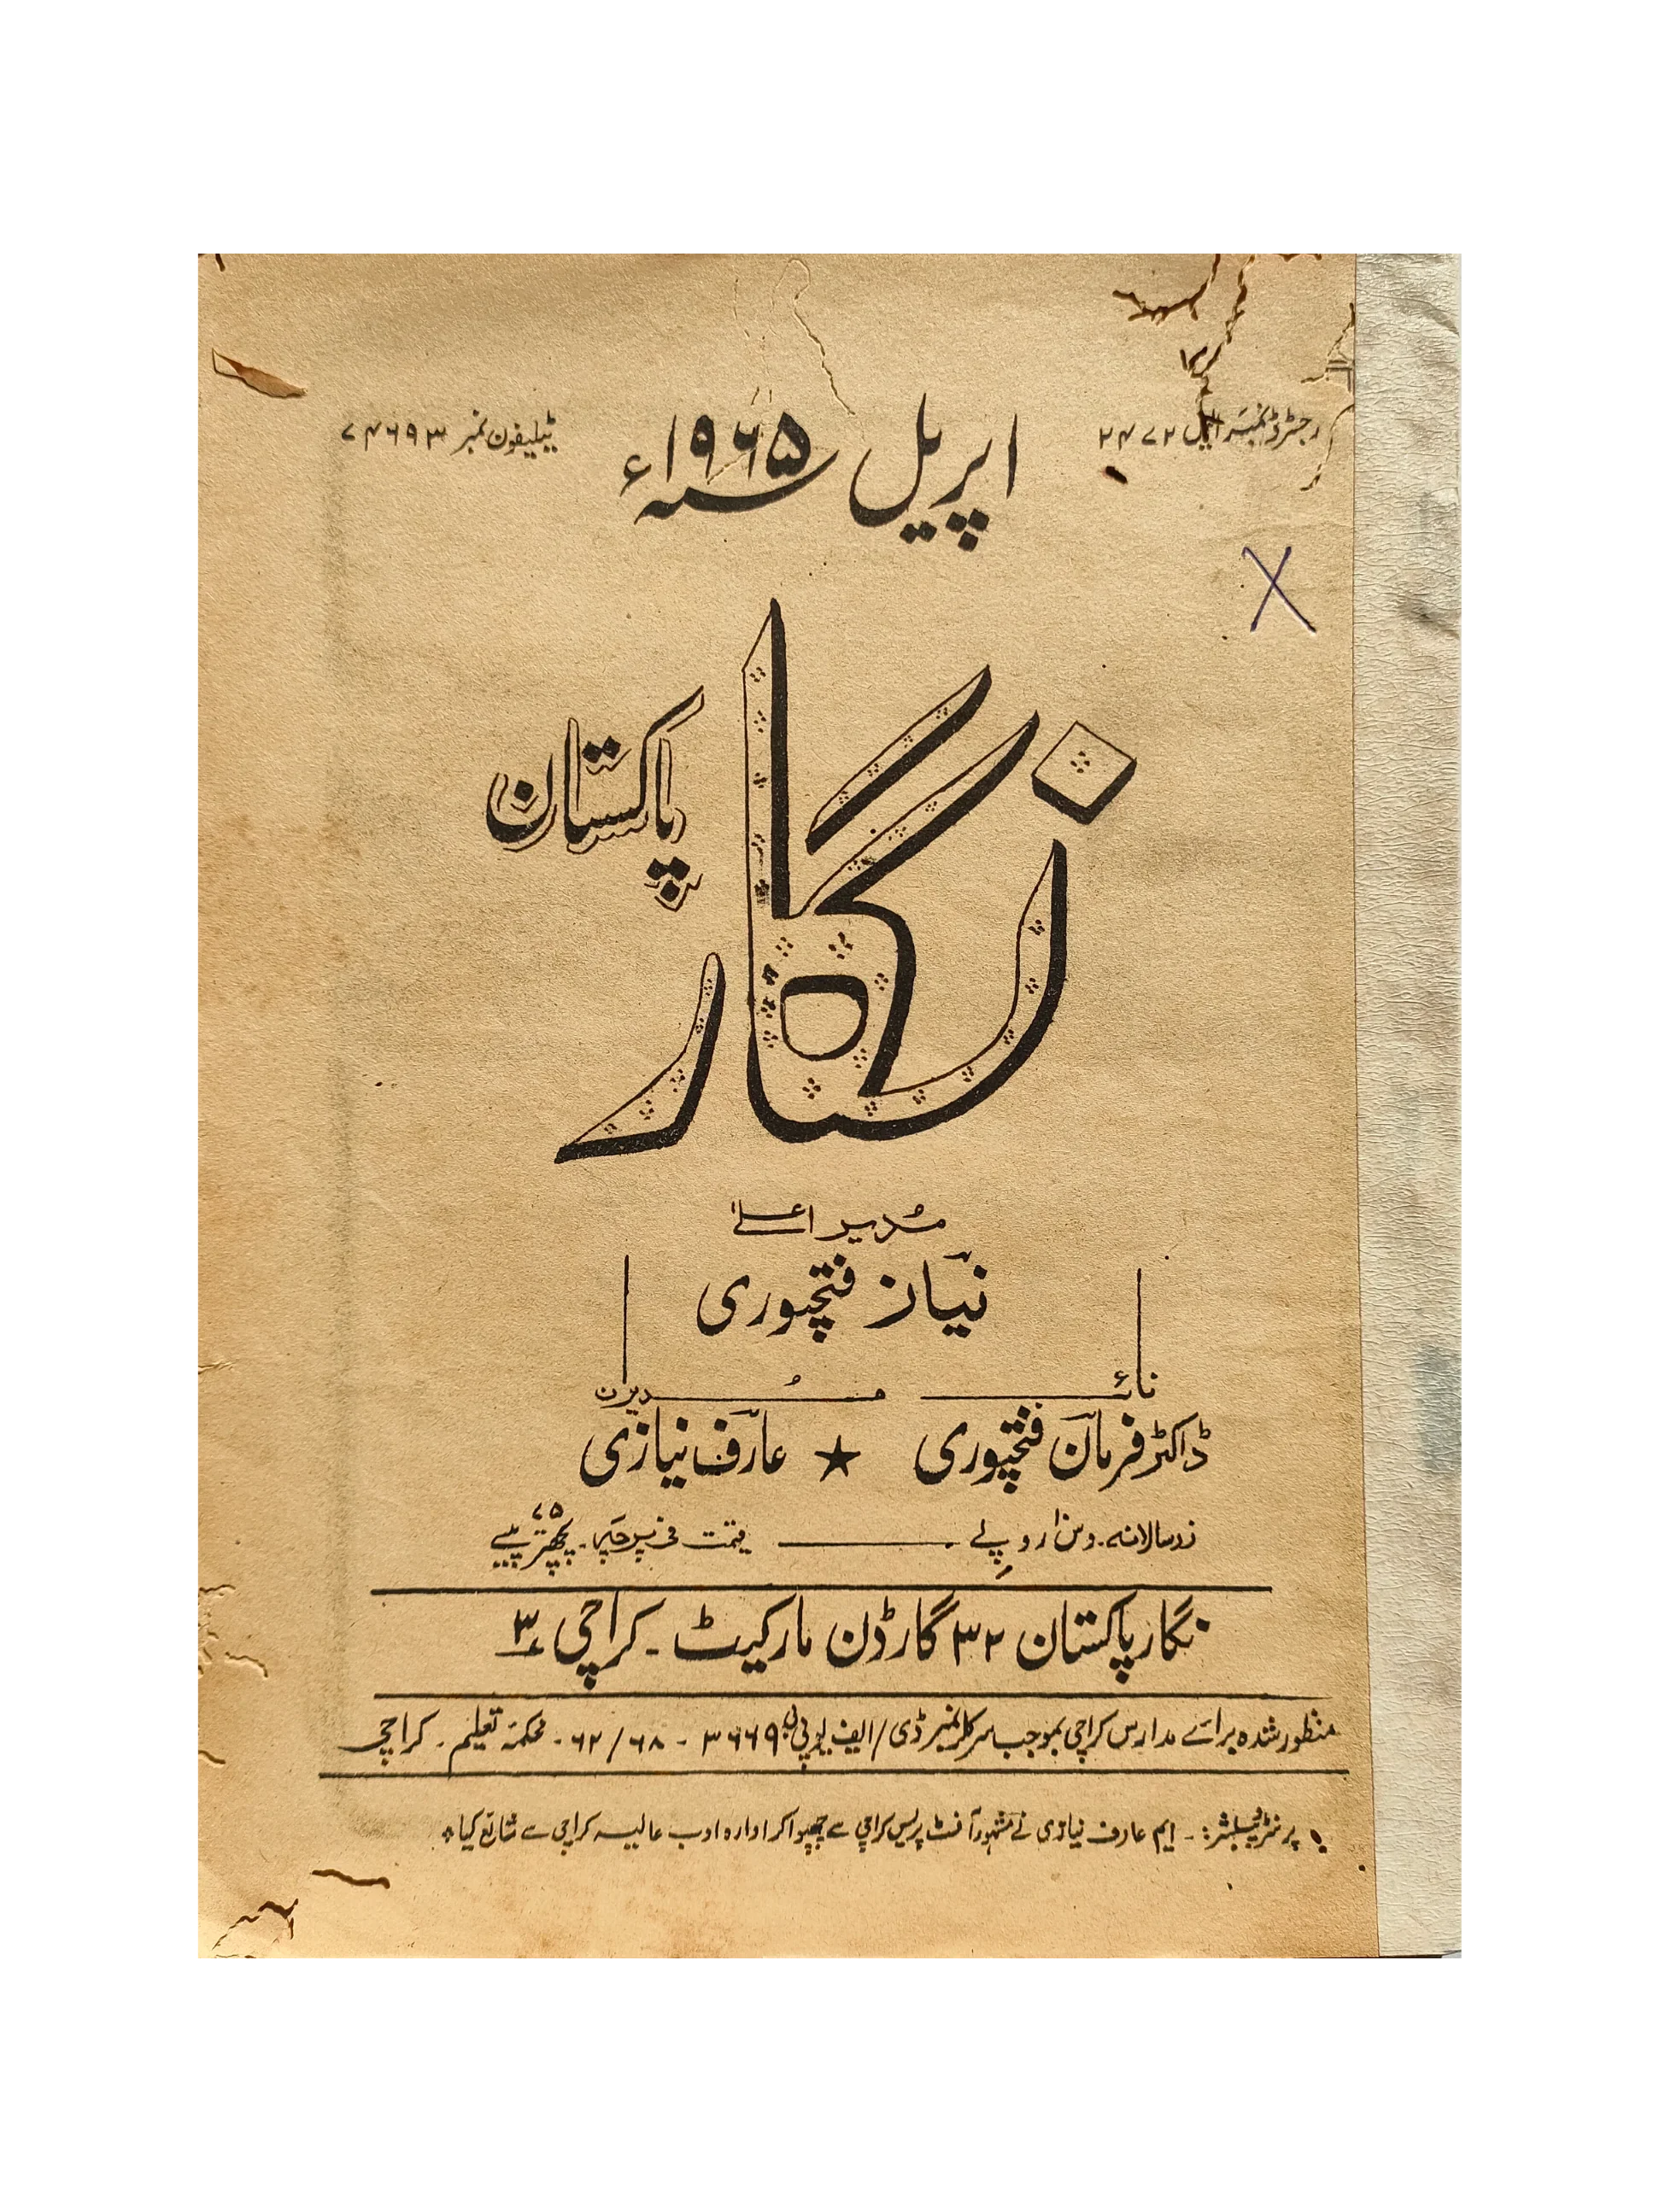 رجسٹرڈ نمبر ایل ۲۴۷۲
اپریل ۱۹۶۵ء
ٹیلیفون نمبر ۷۴۶۹۳
نگار
پاکستان
مُدیر اعلےٰ
نیاز فتحپوری
نائب مُدیران
ڈاکٹر فرمان فتحپوری ★ عارف نیازی
زرسالانہ۔ دس روپے قیمت فی پرچہ۔ پچھتر ۷۵ پیسے
نگار پاکستان ۳۲ گارڈن مارکیٹ۔ کراچی ۳
منظور شدہ برائے مدارس کراچی بموجب سرکلر نمبر ڈی/ایف ۳۶۶۹ - ۶۲/۶۸ - محکمۂ تعلیم۔ کراچی
پرنٹر پبلشر:۔ ایم عارف نیازی نے مشہور آفسٹ پریس کراچی سے چھپوا کر ادارہ ادب عالیہ کراچی سے شائع کیا